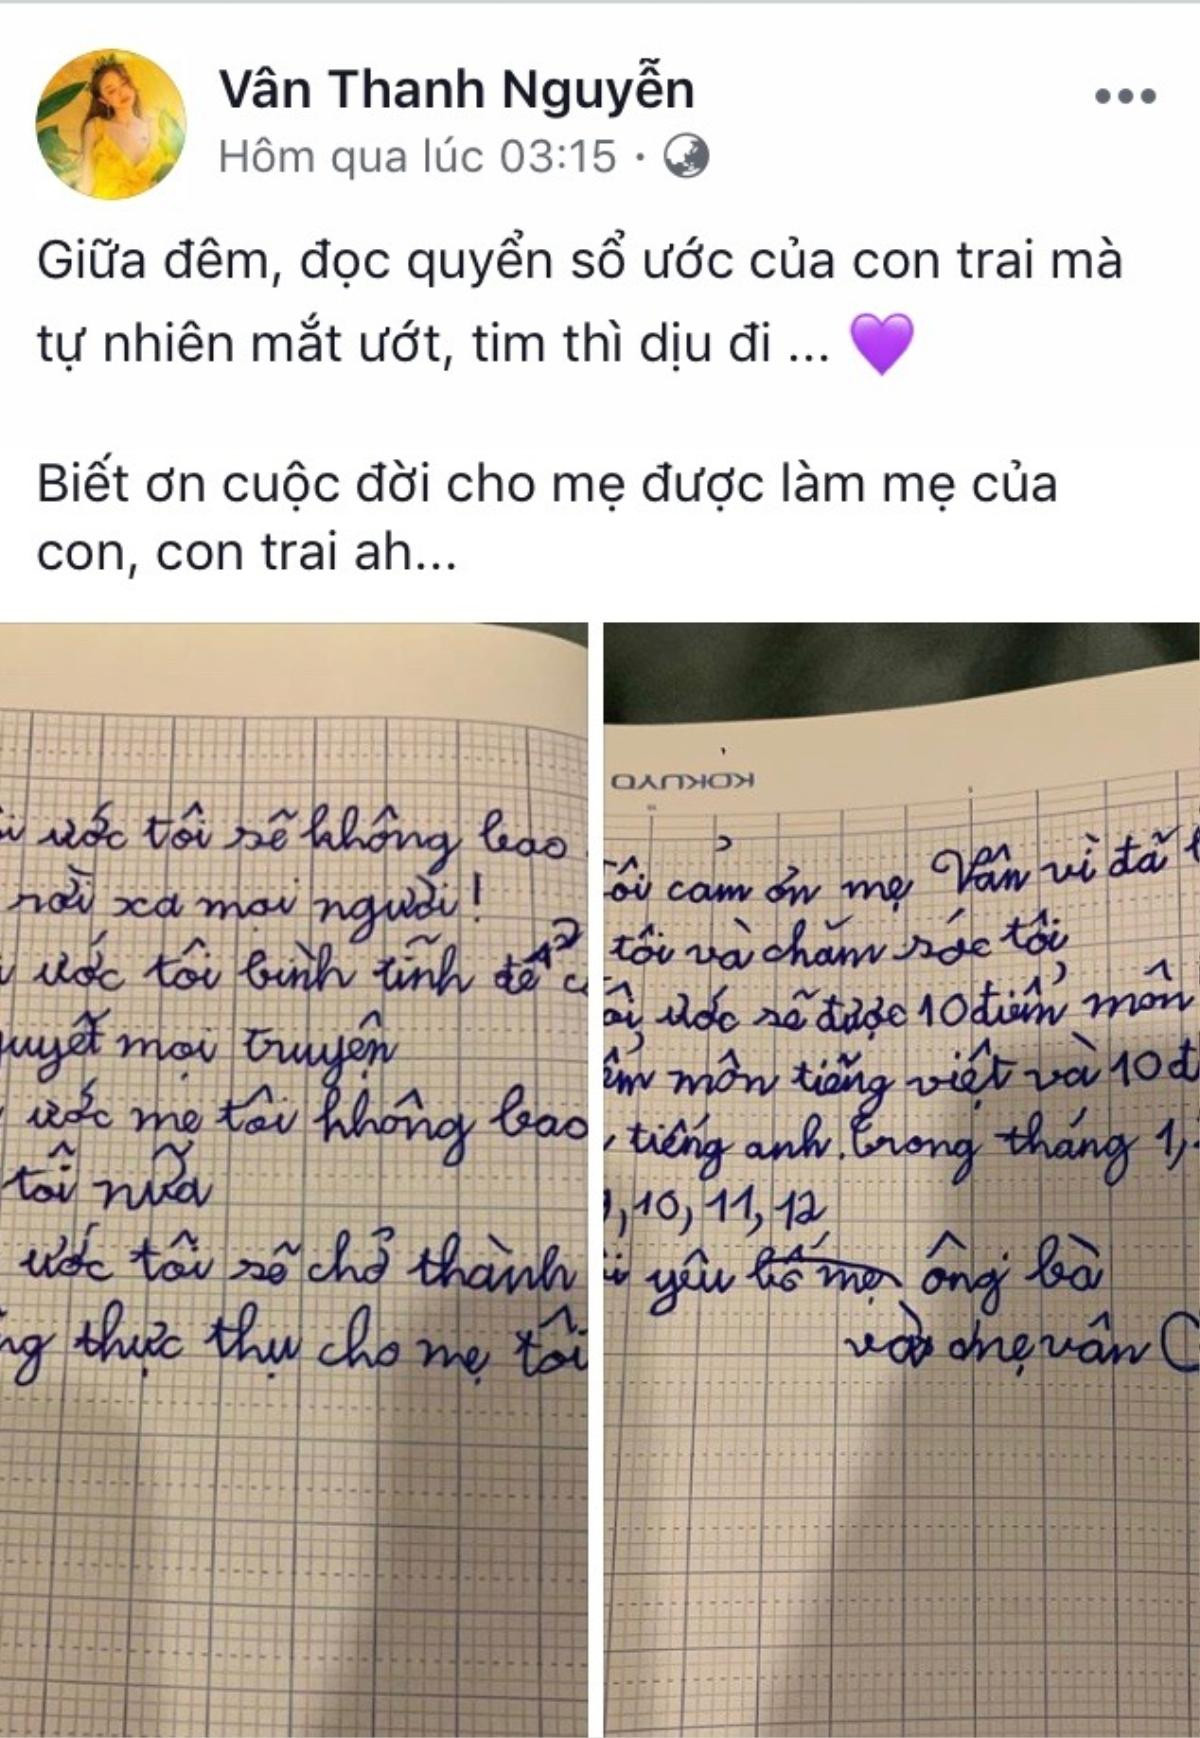 Vân Thanh Nguyễn
Hôm qua lúc 03:15
Giữa đêm, đọc quyển sổ ước của con trai mà
tự nhiên mắt ướt, tim thì dịu đi ... 💜
Biết ơn cuộc đời cho mẹ được làm mẹ của
con, con trai ah...
ước tôi sẽ không bao
rời xa mọi người!
ước tôi bình tĩnh để
mọi truyện
ước mẹ tôi không bao
tôi nữa
ước tôi sẽ chở thành
thực thụ cho mẹ tôi
KOKUYO
cảm ơn mẹ Vân vì đã
tôi và chăm sóc tôi
ước sẽ được 10 điểm môn
môn tiếng việt và 10 đ
tiếng anh. trong tháng 1,
10, 11, 12
yêu bố mẹ ông bà
và mẹ vân